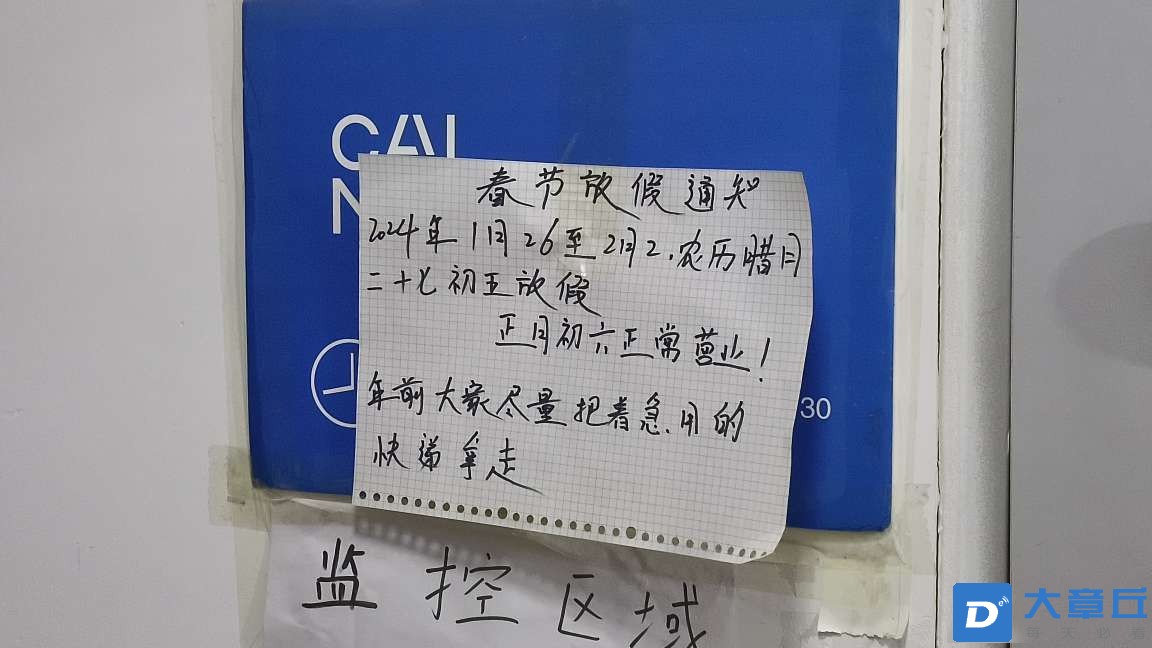 CAI
N
春节放假通知
2024年1月26至2月2.农历腊月
二十七初五放假
正月初六正常营业!
年前大家尽量把着急用的
快递拿走
30
监控区域
大章丘